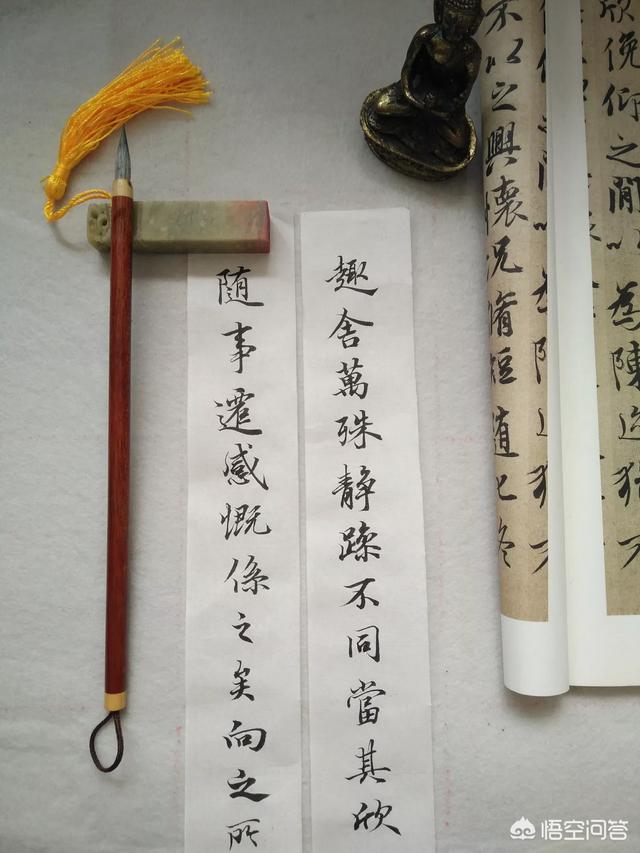 欣俛仰之閒以為陳迹猶不
不以之興懷况脩短随化終
趣舍萬殊静躁不同當其欣
随事遷感慨係之矣向之所
悟空问答